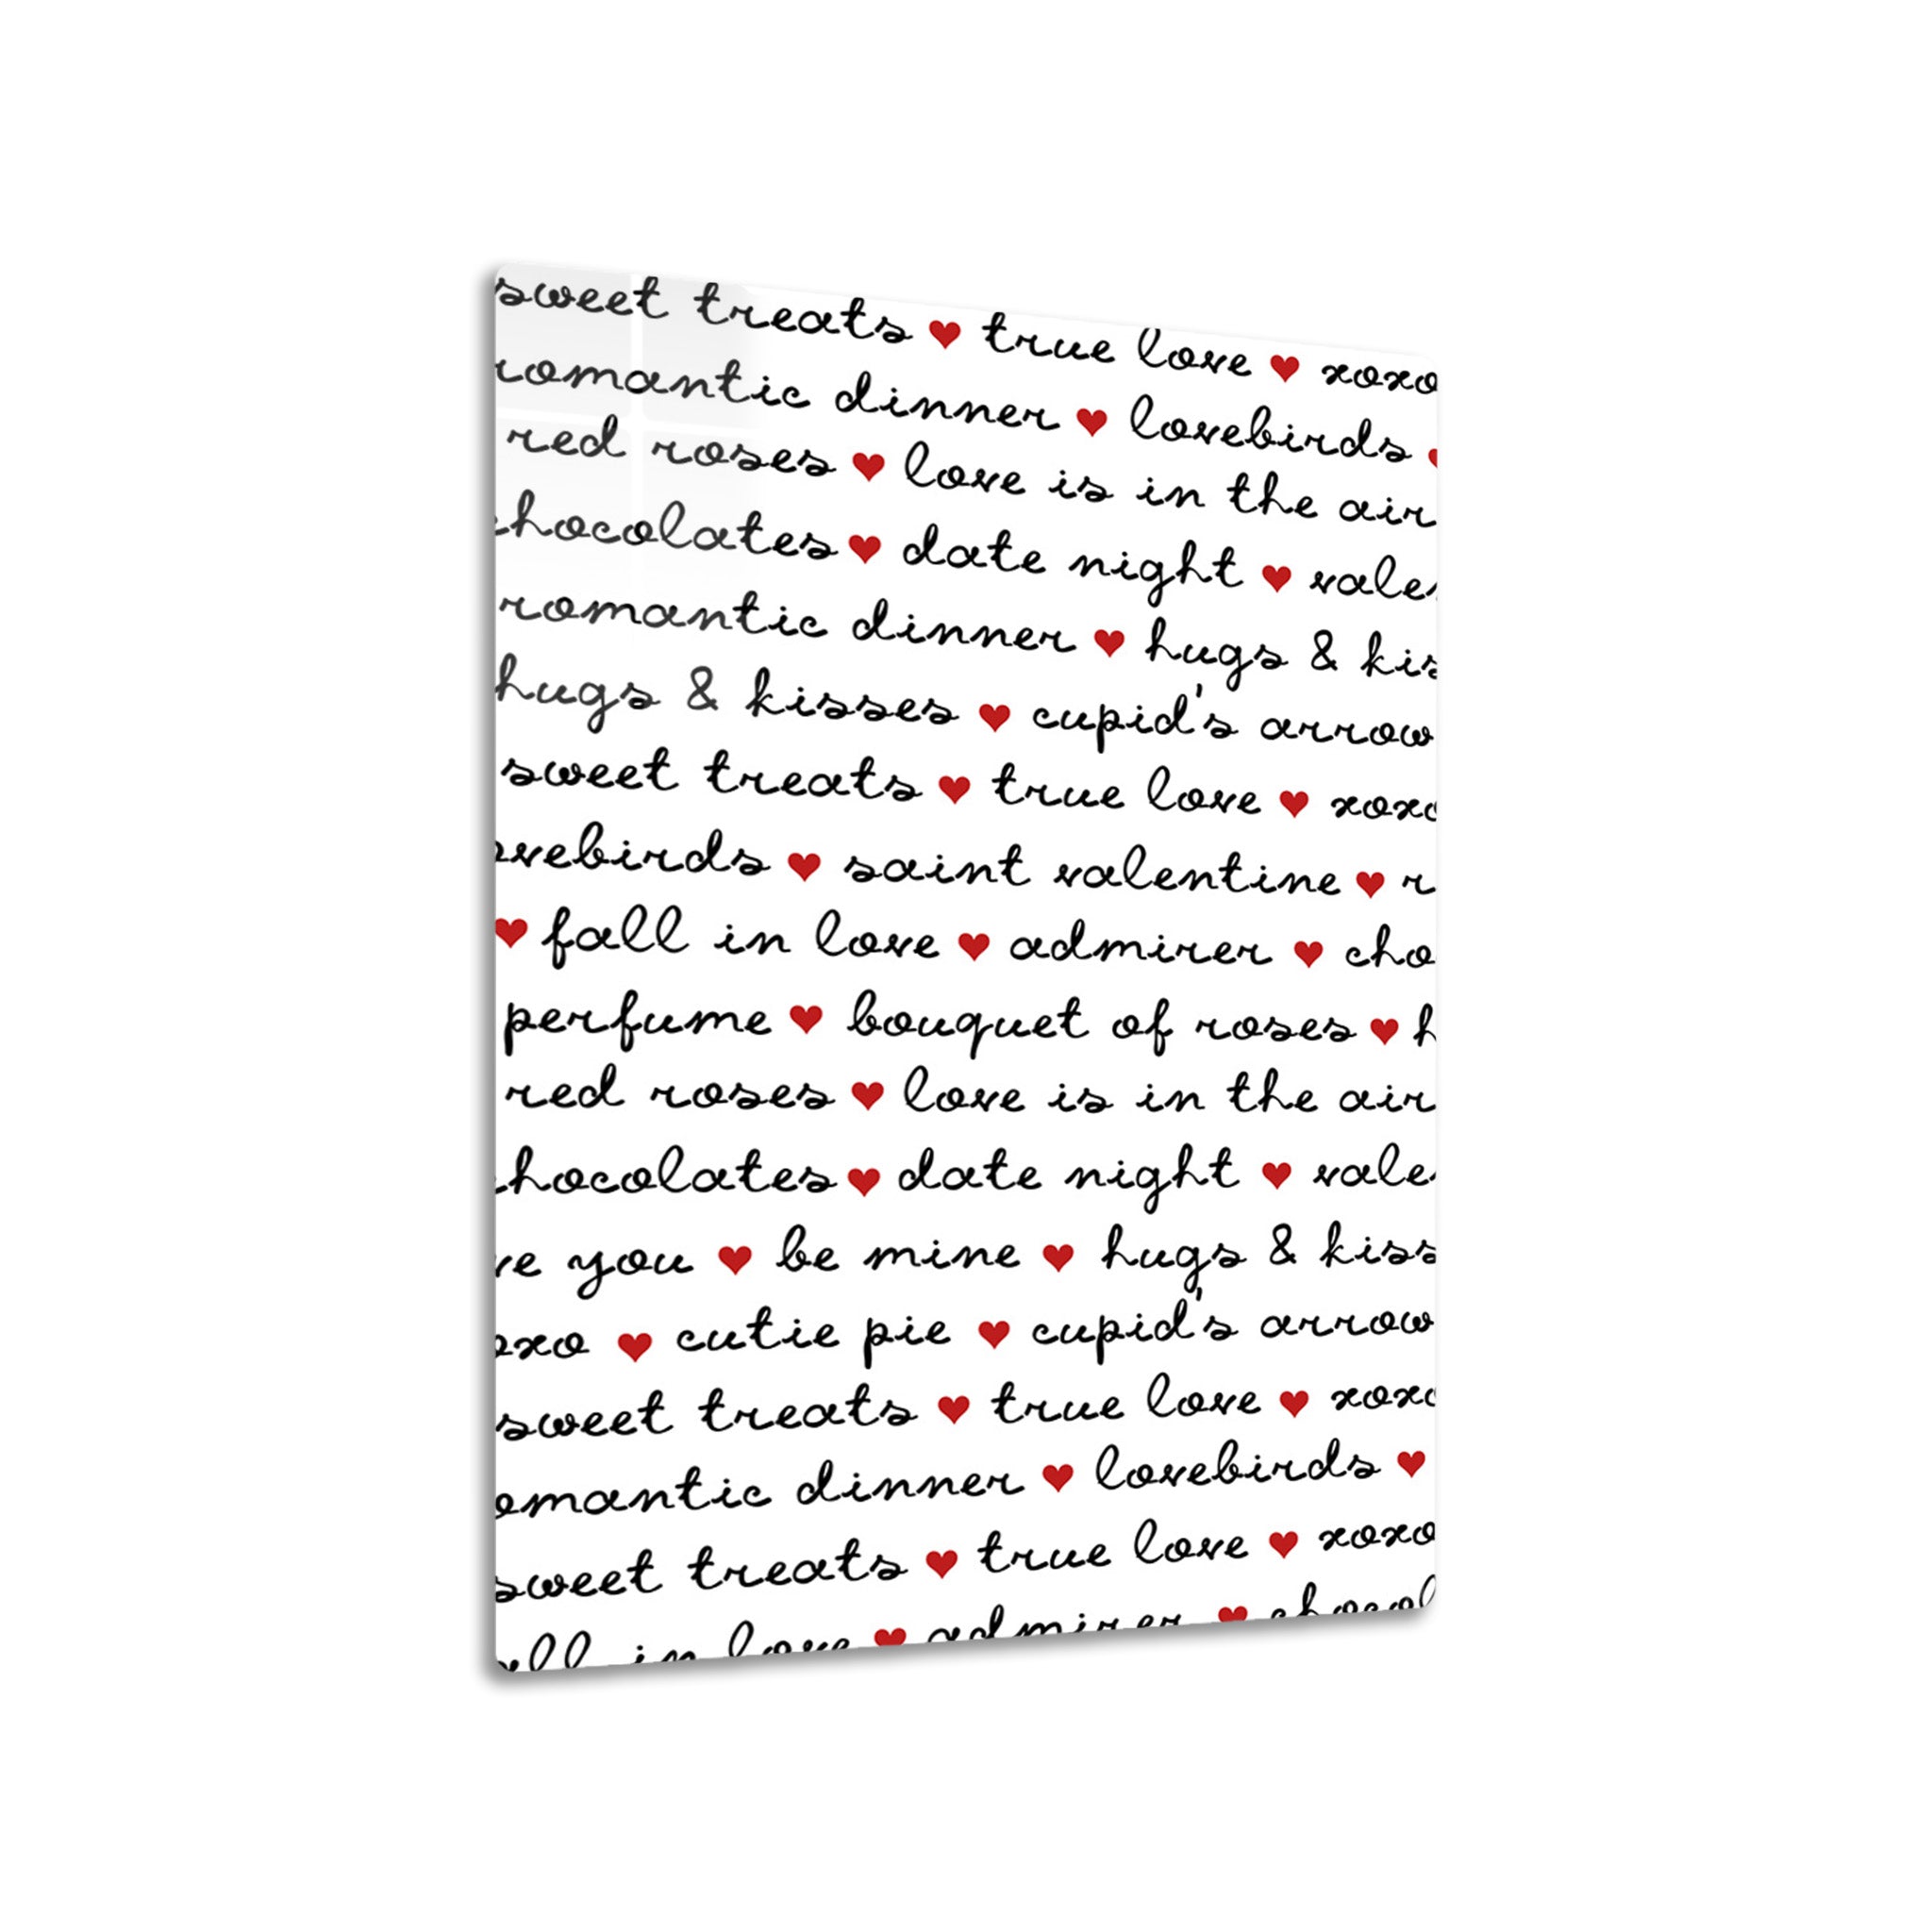 sweet treats ♥ true love ♥ xoxo
romantic dinner ♥ lovebirds ♥
red roses ♥ love is in the air
chocolates ♥ date night ♥ vale
romantic dinner ♥ hugs & kis
hugs & kisses ♥ cupid's arrow
sweet treats ♥ true love ♥ xoxo
ovebirds ♥ saint valentine ♥ r
♥ fall in love ♥ admirer ♥ cho
perfume ♥ bouquet of roses ♥ h
red roses ♥ love is in the air
chocolates ♥ date night ♥ vale
ve you ♥ be mine ♥ hugs & kiss
oxo ♥ cutie pie ♥ cupid's arrow
sweet treats ♥ true love ♥ xoxo
omantic dinner ♥ lovebirds ♥
sweet treats ♥ true love ♥ xoxo
all in love ♥ admirer ♥ chocol